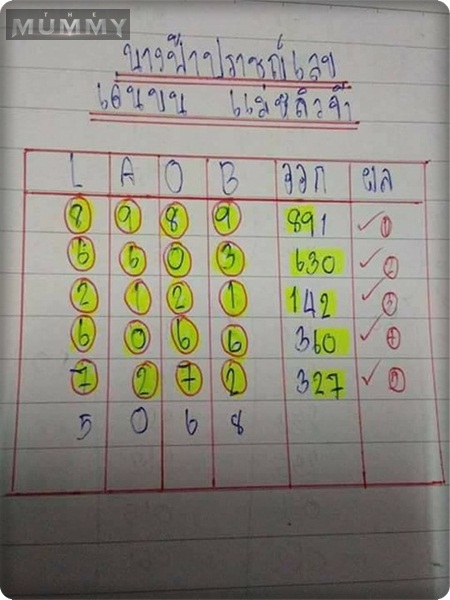 THE
MUMMY
นางฟ้าปราชญ์เลข
เด่นบน แม่หลิวจ้า
L A O B ออก ผล
8 9 8 9 891 ✓ 1
6 6 0 3 630 ✓ 2
2 1 2 1 142 ✓ 3
6 0 6 6 360 ✓ 4
7 2 7 2 327 ✓ 5
5 0 6 8